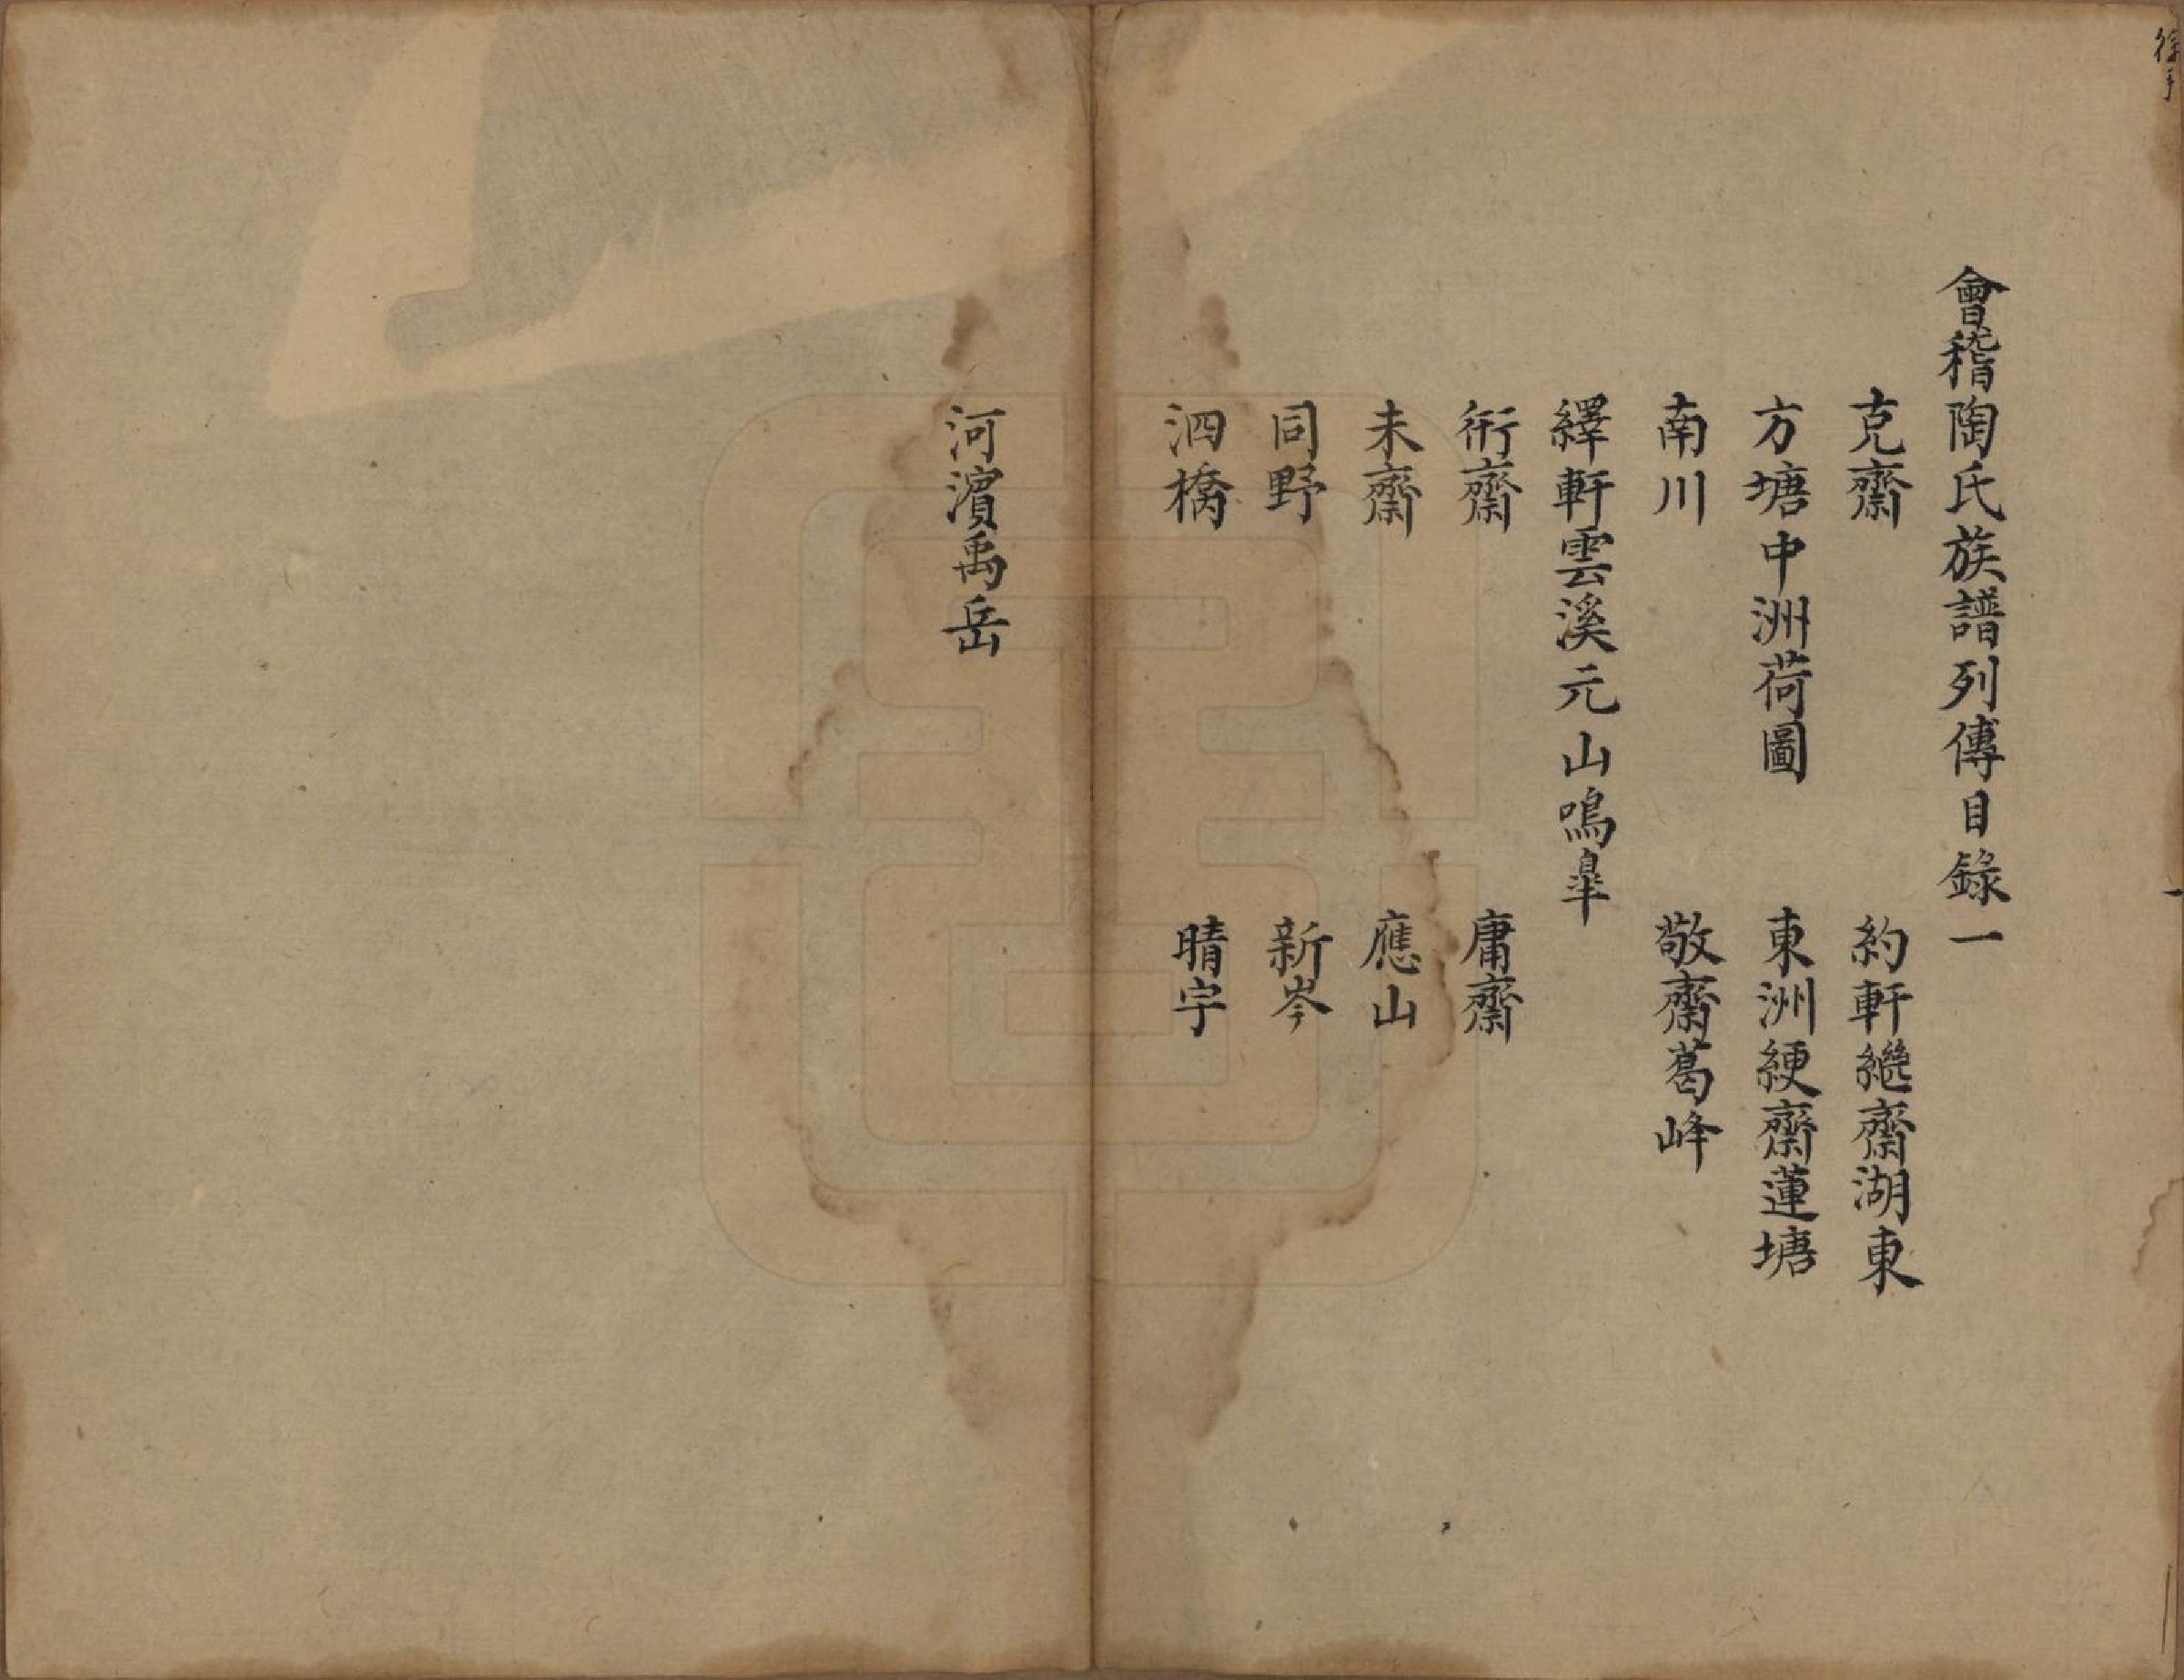 會稽陶氏族譜列傳目錄一
克齋　約軒繼齋湖東
方塘中洲荷圖　東洲綆齋蓮塘
南川　敬齋葛峰
繹軒雲溪元山鳴臯
衎齋　庸齋
未齋　應山
同野　新岑
泗橋　晴宇
河濵禹岳